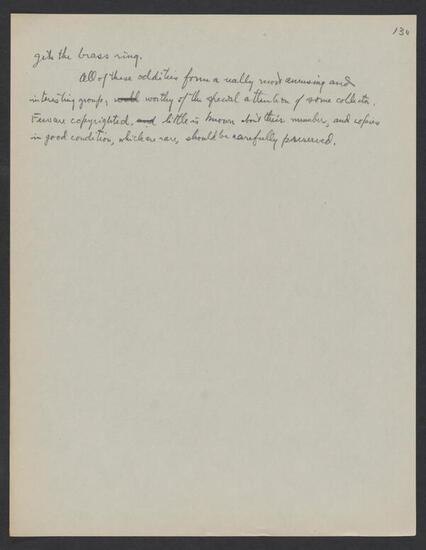 130
gets the brass ring.
All of these oddities form a really most amusing and
interesting group, worthy of the special attention of some collector.
Few are copyrighted, little is known about their number, and copies
in good condition, which are rare, should be carefully preserved.